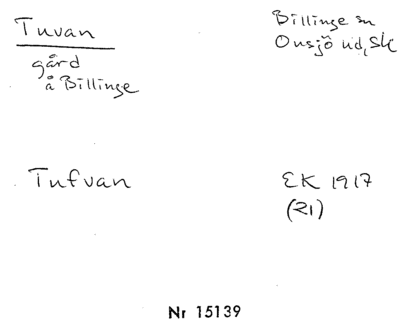 Tuvan
Billinge sn
Onsjö hd, Sk
gård
å Billinge
Tufvan
EK 1917
(21)
Nr 15139